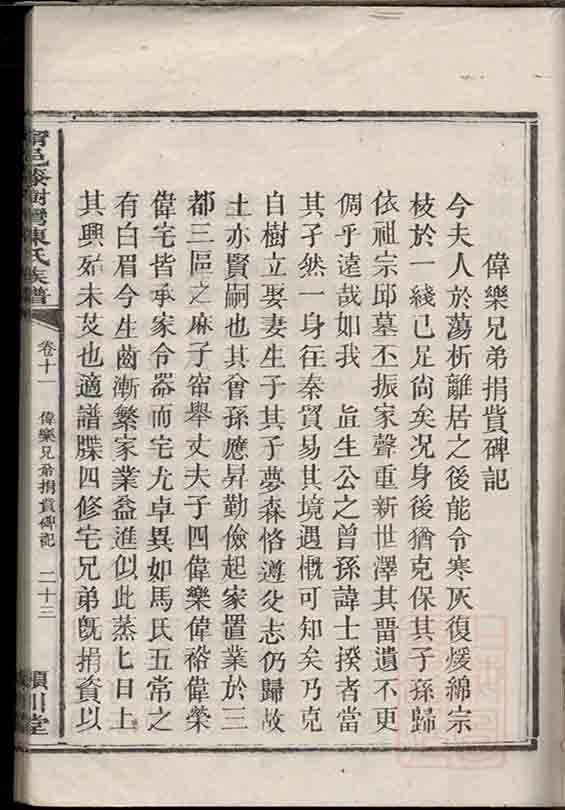 偉樂兄弟捐貲碑記
今夫人於蕩析離居之後能令寒灰復煖綿宗
枝於一綫已足尙矣况身後猶克保其子孫歸
依祖宗邱墓丕振家聲重新世澤其畱遺不更
倜乎遠哉如我 眞生公之曾孫諱士揆者當
其孑然一身在秦貿易其境遇慨可知矣乃克
自樹立娶妻生子其子夢森恪遵父志仍歸故
土亦賢嗣也其曾孫應昇勤儉起家置業於三
都三區之麻子帘舉丈夫子四偉樂偉裕偉榮
偉宅皆承家令器而宅尤卓異如馬氏五常之
有白眉今生齒漸繁家業益進似此蒸匕日上
其興殆未艾也適譜牒四修宅兄弟旣捐資以
甯邑 樹灣陳氏族譜
卷十一
偉樂兄弟捐貲碑記
二十三
潁川堂